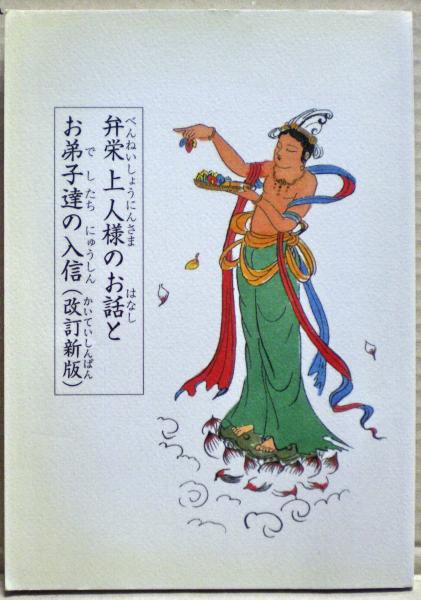 弁栄上人様のお話と
べんねいしょうにんさま
はなし
お弟子達の入信（改訂新版）
でしたち
にゅうしん
かいていしんぱん